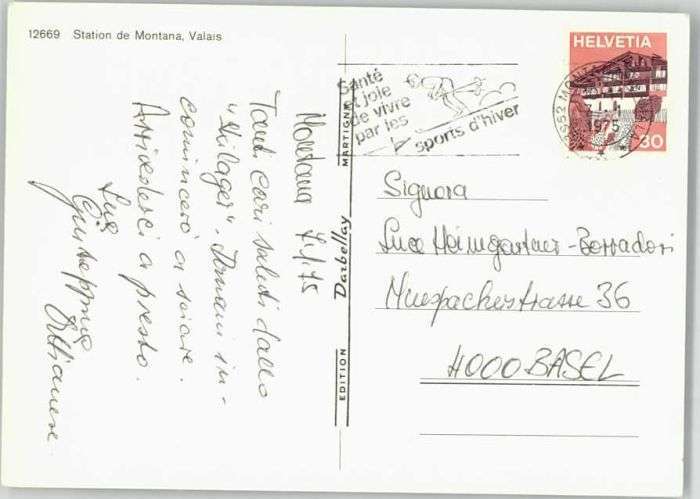 12669 Station de Montana, Valais
Montana 7/1/75
Tanti cari saluti dallo
"villaggi". Domani in-
comincerò a sciare.
Arrivederci a presto.
Sua
Giuseppina
EDITION Darbellay MARTIGNY
Santé
et joie
de vivre
par les
sports d'hiver
HELVETIA
1975
30
Signora
Luce Heimgartner-Borradori
Muespacherstrasse 36
4000 BASEL